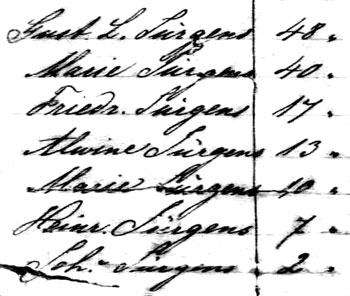 Gust. L. Jürgens 48 "
Marie Jürgens 40 "
Friedr. Jürgens 17 "
Alwine Jürgens 13 "
Marie Jürgens 10 "
Heinr. Jürgens 7 "
Joh. Jürgens 2 "